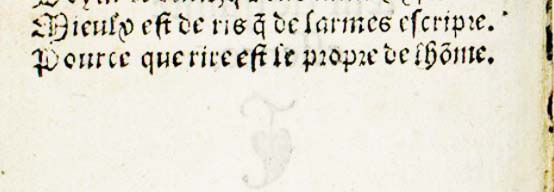 Mieulx est de ris q̃ de larmes escripre.
Pource que rire est le propre de lhõme.